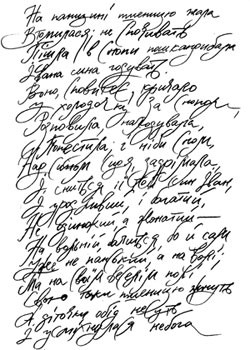 На панщині пшеницю жала
Втомилася; не спочивать
Пішла в снопи пошкандибала
Івана сина годувать.
Воно сповитеє кричало
У холодочку за снопом,
Розповила, нагодувала,
Попестила; і ніби сном,
Над сином сидя задрімала,
І сниться їй той син Іван,
І уродливий, і багатий,
Не одинокий, а жонатий —
На вольній, бачиться, бо й сам
Уже не панський, а на волі;
Та на своїм веселім полі
Свою таки пшеницю жнуть
А діточки обід несуть
І усміхнулася небога